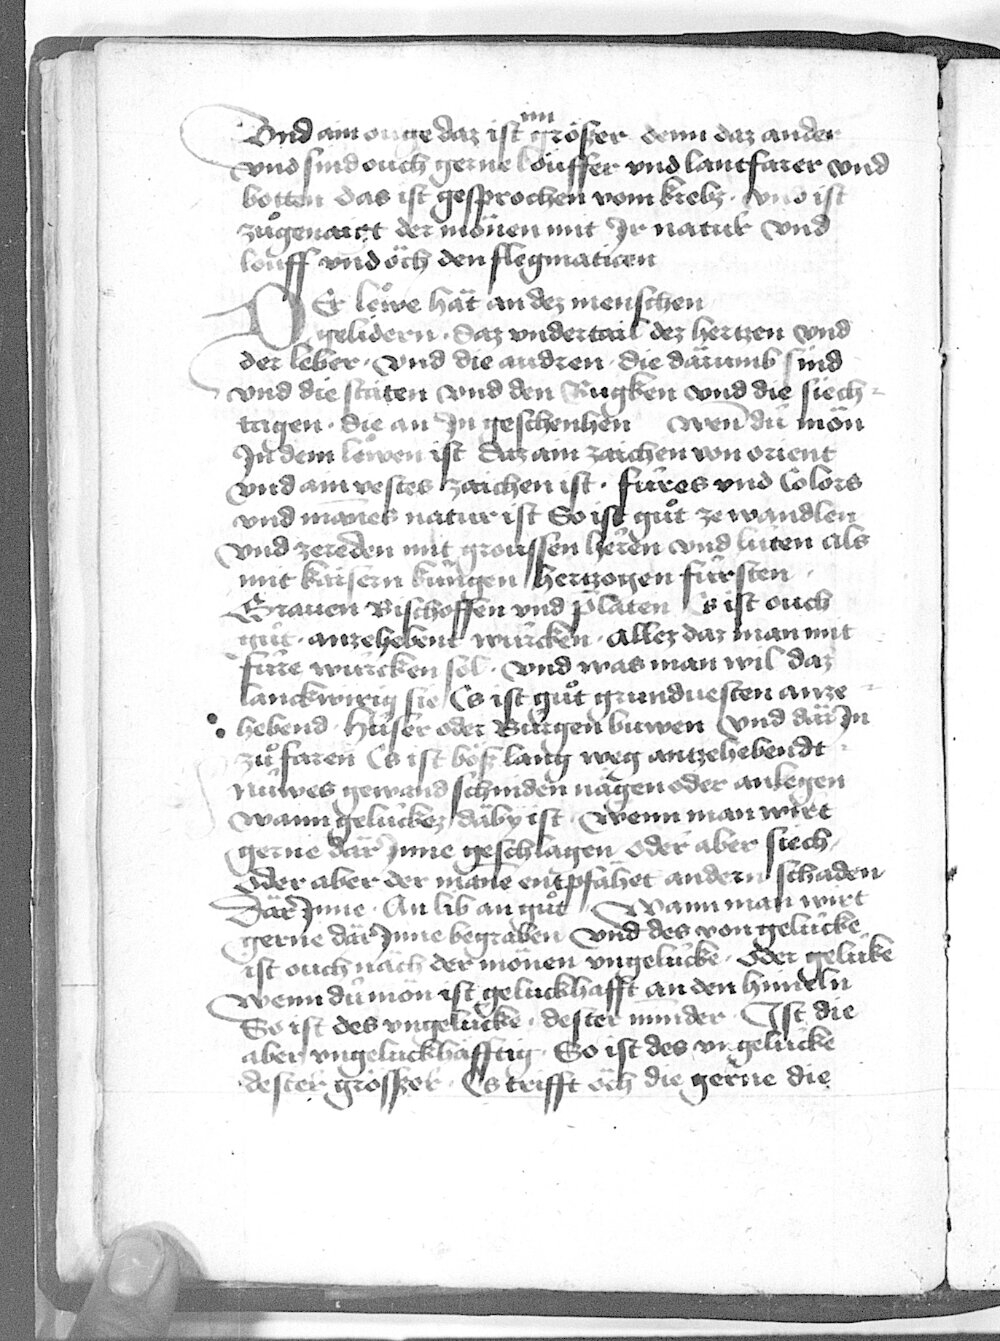 Vnd ain ouge daz ist größer denn daz ander
vnd sind ouch gerne löuffer vnd lantfarer vnd
botten das ist gesprochen vom krebz · vnd ist
zůgenaigt der mönen mit Jr natur vnd
louff vnd öch den flegmaticen
DEr lewe hät an dez menschen
gelidern · daz vndertail dez hertzen vnd
der leber · vnd die andren · die därumb sind
vnd die sitten vnd den Rugken vnd die siech-
tagen · die an Jn geschenhen wen dü mön
Jn dem löwen ist daz ain zaichen von orient
vnd ain vestes zaichen ist · füres vnd Colors
vnd manes natur ist So ist gůt ze wandlen
vnd zereden mit groussen heren vnd lüten als
mit kaisern küngen hertzogen fürsten ·
Grauen Bischoffen vnd platen Es ist ouch
gůt · anzehebent würcken · allez daz man mit
füre würcken sol · vnd was man wil daz
lanckwirig sie Es ist gůt gruntuesten anze-
hebend · hüser oder Burgen buwen vnd där Jn
zů faren Es ist böß lang weg antzehebendt ·
nüwes gewand schniden nägen oder anlegen
wann gelückez däby ist · wenn man wirt
gerne där Jnne geschlagen oder aber siech
oder aber der mane entpfähet andern schaden
Där Jnne · An lib an gůt · Wann man wirt
gerne där Jnne begraben vnd des von gelücke
ist ouch näch der mönen vngelücke · oder gelücke
wenn dü mön ist gelückhafft an den himeln
So ist des vngelücke · dester minder · Ist die
aber vngelückhafftig · So ist des vngelücke
dester grösser · Es trifft öch die gerne die